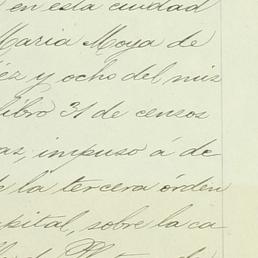 en esta ciudad
Maria Moya de
éz y ocho del mis
libro 31 de censos
as, impuso á de
e la tercera órden
pital, sobre la ca